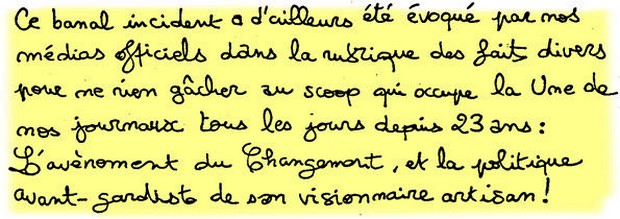 Ce banal incident a d'ailleurs été évoqué par nos
médias officiels dans la rubrique des faits divers
pour ne rien gâcher au scoop qui occupe la Une de
nos journaux tous les jours depuis 23 ans :
L'avènement du Changement, et la politique
avant-gardiste de son visionnaire artisan !